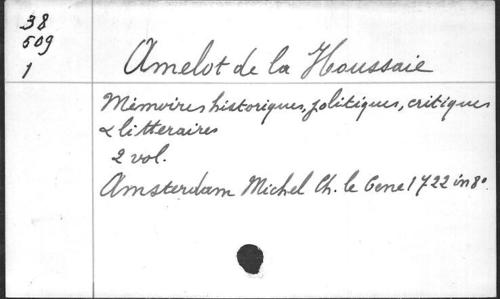 38
509
1
Amelot de la Houssaie
Mémoires historiques, politiques, critiques
& litteraires
2 vol.
Amsterdam Michel Ch. le Cene 1722 in 8°